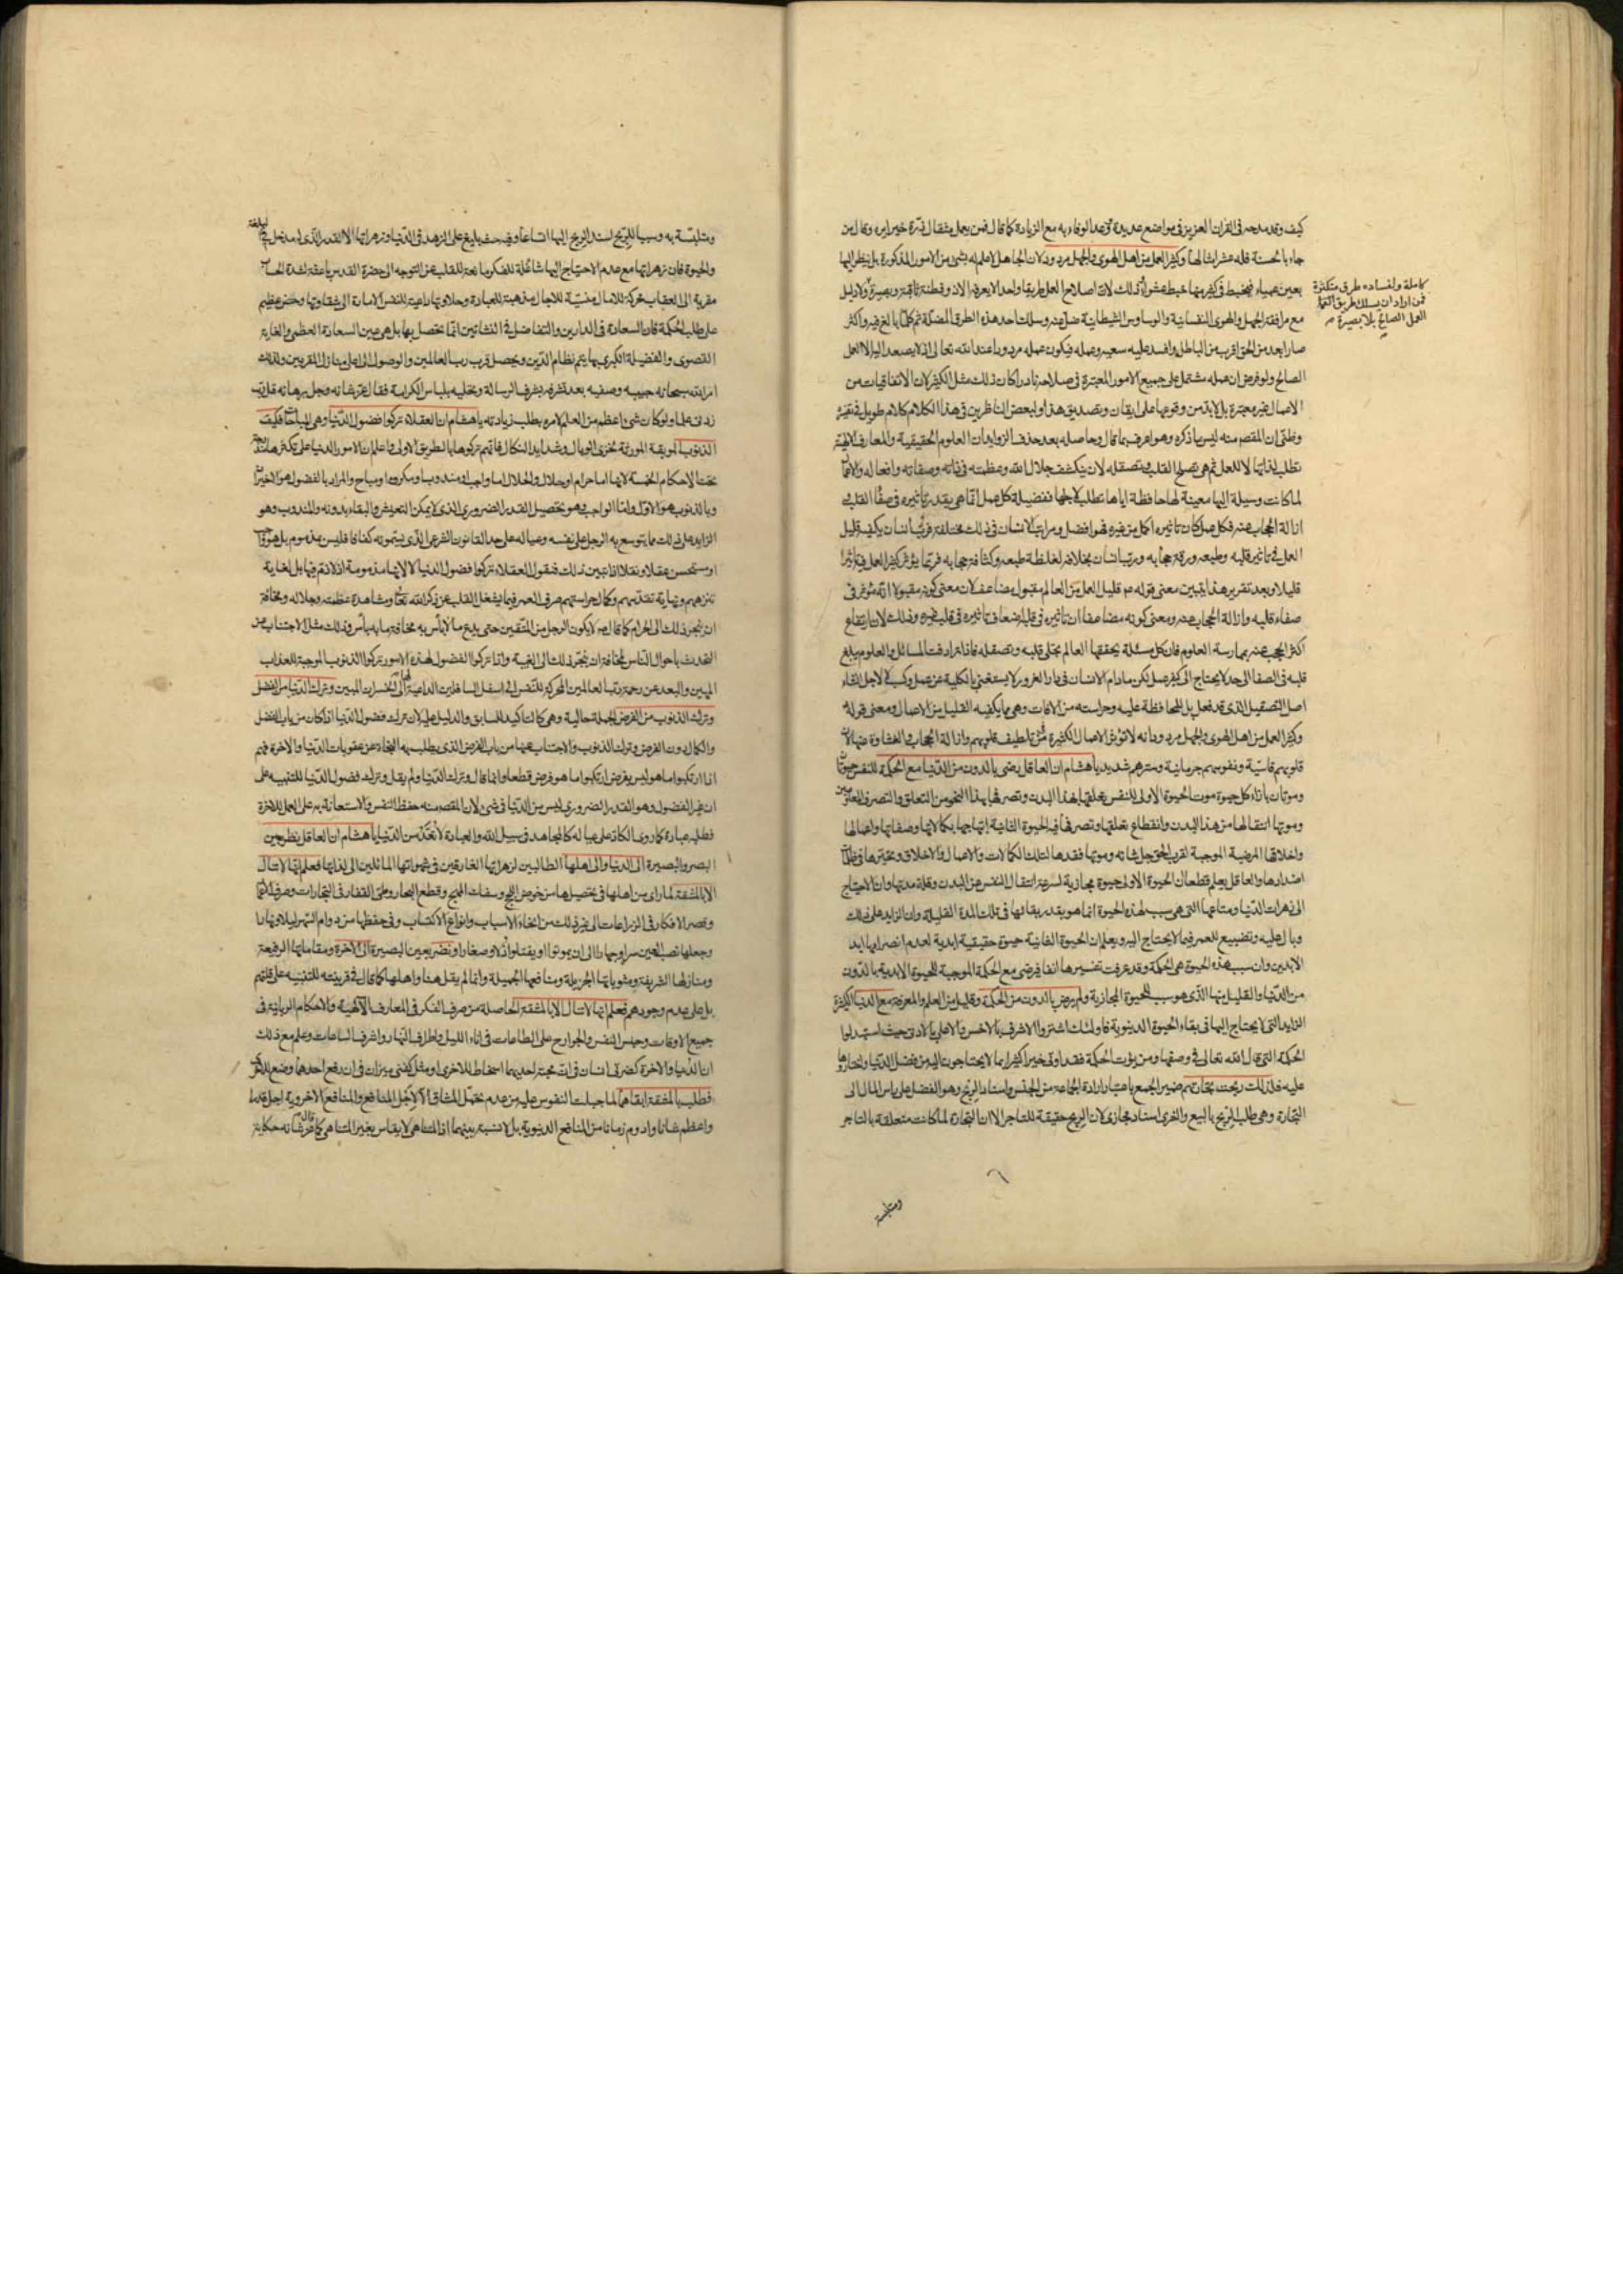 كيف وقد مدحه فى القران العزيز فى مواضع عديدة ووعد الوفاء به مع الزيادة كما قال فمن يعمل مثقال ذرة خيرا يره وقال من
جاء بالحسنة فله عشر امثالها وكثير العمل من اهل الهوى والجهل مردود لان الجاهل لا علم له بشئ من الامور المذكورة بل ينظر اليها
بعين عمياء فيخبط فى كثير منها خبط عشواء وذلك لان لاصلاح العمل طريقا واحدا لا يعرفه الا ذو فطنة ثاقبة وبصيرة
كاملة ولفساده طرق متكثرة
فمن اراد ان يسلك طريق
العمل الصالح بلا بصيرة
ولا دليل
مع مرافقة الجهل والهوى النفسانية والوساوس الشيطانية ضل عنه وسلك احد هذه الطرق المضلة ثم كلما بالغ فيه واكثر
صار ابعد من الحق اقرب من الباطل وافسد عليه سعيه وعمله فيكون عمله مردودا عند الله تعالى اذ لا يصعد اليه الا العمل
الصالح ولو فرض ان عمله مشتمل على جميع الامور المعتبرة فى صلاحه نادرا كان ذلك مثل الكثير لان الاتفاقيات من
الاعمال غير معتبرة بل لابد من وقوعها على ايقان وتصديق هذا ولبعض الناظرين فى هذا الكلام كلام طويل فى تفسيره
وظنى ان المقصود منه ليس ما ذكره وهو اعرف بما قال وحاصله بعد حذف الزوايد ان العلوم الحقيقية والمعارف الالهية
تطلب لذاتها لا للعمل ثم هى تصلح القلب وتصقله لان ينكشف جلال الله وعظمته فى ذاته وصفاته وافعاله والاعمال
لما كانت وسيلة اليها معينة لها حافظة اياها تطلب لاجلها ففضيلة كل عمل انما هى بقدر تأثيره فى صفاء القلب
ازالة الحجاب عنه فكل عمل كان تاثيره اكمل من غيره فهو افضل ومراتب الانسان فى ذلك مختلفة فرب انسان يكفيه قليل
العمل فى تأثير قلبه وطبعه ورقة حجابه ورب انسان بخلافه لغلظة طبعه وكثافة حجابه فربما يؤثر كثير العمل فيه تأثيرا
قليلا وبعد تقرير هذا يتبين معنى قوله ع قليل العمل من العالم مقبول مضاعف لان معنى كونه مقبولا انه مؤثر فى
صفاء قلبه وازالة الحجاب عنه ومعنى كونه مضاعفا ان تاثيره فى قلبه اضعاف تاثيره فى قلب غيره وذلك لان ارتفاع
اكثر الحجب عنه بممارسة العلوم فان كل مسئلة يحققها العالم يجلى قلبه وتصقله فاذا ترادفت المسائل والعلوم يبلغ
قلبه فى الصفا الى حد لا يحتاج الى كثير عمل لكن مادام الانسان فى دار الغرور لا يستغنى بالكلية عن عمل وكسب لا لاجل القاء
اصل التصقيل الذى قد فعل بل للمحافظة عليه وحراسته من الافات وهى مما يكفيه القليل من الاعمال ومعنى قوله
وكثير العمل من اهل الهوى والجهل مردود انه لا تؤثر الاعمال الكثيرة منهم فى تلطيف قلوبهم وازالة الحجاب والغشاوة عنها لان
قلوبهم قاسية ونفوسهم جرمانية وسترهم شديد يا هشام ان العاقل رضى بالدون من الدنيا مع الحكمة للنفس حيوتان
وموتان بازاء كل حيوة موت الحيوة الاولى للنفس تعلقها بهذا البدن وتصرفها بهذا النحو من التعلق والتصرف المعلومين
وموتها انتقالها من هذا البدن وانقطاع تعلقها وتصرفها فيه الحيوة الثانية ابتهاجها بكمالاتها وصفاتها واعمالها
واخلاقها المرضية الموجبة لقرب الحق جل شانه وموتها فقدها لتلك الكمالات والاعمال والاخلاق وتحيرها فى ظلمات
اضدارها والعاقل يعلم قطعا ان الحيوة الاولى حيوة مجازية لسرعة انتقال النفس من البدن وقلة مدتها وان الاحتياج
الى زهرات الدنيا ومتاعها التى هى سبب لهذه الحيوة انما هو بقدر بقائها فى تلك المدة القليلة وان الزايد على ذلك
وبال عليه وتضييع للعمر فيما لا يحتاج اليه ويعلم ان الحيوة الثانية حيوة حقيقية ابدية لعدم انصرامها ابد
الابدين وان سبب هذه الحيوة هى الحكمة وقد عرفت تفسيرها انفا فرضى مع الحكمة الموجبة للحيوة الابدية بالدون
من الدنيا والقليل منها الذى هو سبب للحيوة المجازية ولم يرض بالدون من الحكمة وقليل من العلم والمعرفة مع الدنيا الكثيرة
الزايد التى لا يحتاج اليها فى بقاء الحيوة الدنيوية فاولئك اشتروا الاشرف بالاخس والاعلى بالادنى حيث استبدلوا
الحكمة التى قال الله تعالى فى وصفها ومن يؤت الحكمة فقد اوتى خيرا كثيرا بما لا يحتاجون اليه من فضل الدنيا واختاروها
عليه فلذلك ربحت تجارتهم ضمير الجمع باعتبار ارادة الجماعة من الجنس واسناد الربح وهو الفضل على راس المال الى
التجارة وهى طلب الربح بالبيع والشرى اسناد مجازى لان الربح حقيقة للتاجر الا ان التجارة لما كانت متعلقة بالتاجر
ومتلبسة
ومتلبسة به وسببا للربح اسند الربح اليها اتساعا وفيه حث بليغ على الزهد فى الدنيا وزهراتها الا القدر الذى له مدخل فى البلغة
والحيوة فان زهراتها مع عدم الاحتياج اليها شاغلة للفكر مانعة للقلب عن التوجه الى حضرة القدس باعثة لشدة الحساب
مقربة الى العقاب محركة للامال منسية للاجال مذهبة للعبادة وحلاوتها داعية للنفس الامارة الى شقاوتها وحض عظيم
على طلب الحكمة فان السعادة فى الدارين والتفاضل فى النشاتين انما تحصل بها بل هى عين السعادة العظمى والغاية
القصوى والفضيلة الكبرى بها يتم نظام الدين ويحصل قرب رب العالمين والوصول الى اعلى منازل المقربين ولذلك
امر الله سبحانه حبيبه وصفيه بعد تشرفه بشرف الرسالة وتحليه بلباس الكرامة فقال عز شانه وجل برهانه قل رب
زدنى علما ولو كان شئ اعظم من العلم لامره بطلب زيادته يا هشام ان العقلاء تركوا فضول الدنيا وهى المباحات فكيف
الذنوب الموبقة المورثة لخزى الوبال وشدايد النكال فانهم تركوها بالطريق الاولى واعلم ان الامور الدنيا على تكثرها مندرجة
تحت الاحكام الخمسة لانها اما حرام او حلال والحلال اما واجب او مندوب او مكروه او مباح والمراد بالفضول هو الاخيران
وبالذنوب هو الاول واما الواجب فهو تحصيل القدر الضرورى الذى لا يمكن التعيش والبقاء بدونه والمندوب وهو
الزايد على ذلك مما يتوسع به الرجل على نفسه وعياله على حد القانون الشرعى الذى يسمونه كفافا فليس بمذموم بل هو واجب
او مستحسن عقلا ونقلا اذا تبين ذلك فنقول العقلاء تركوا فضول الدنيا لا لانها مذمومة اذ لا ذم فيها بل لغاية
تنزههم ونهاية تقدسهم وكمال حراستهم صرف العمر فيما يشغل القلب عن ذكر الله تعالى ومشاهدة عظمته وجلاله ومخافة
ان ينجر ذلك الى الحرام كما قال ص لا يكون الرجل من المتقين حتى يدع ما لا بأس به مخافة ما به بأس وذلك مثل الاجتناب عن
التحدث باحوال الناس لمخافة ان ينجر ذلك الى الغيبة واذا تركوا الفضول لهذه الامور تركوا الذنوب الموجبة للعذاب
المهين والبعد عن رحمة رب العالمين المحركة للنفس الى اسفل السافلين الداعية لها الى الخسران المبين وترك الدنيا من الفضل
وترك الذنوب من الفرض الجملة حالية وهى كالتاكيد للسابق والدليل عليه لان ترك فضول الدنيا اذا كان من باب الفضل
والكمال دون الفرض وترك الذنوب والاجتناب عنها من باب الفرض الذى يطلب به النجاة عن عقوبات الدنيا والاخرة فهم
اذا ارتكبوا ما هو ليس بفرض ارتكبوا ما هو فرض قطعا وانما قال وترك الدنيا ولم يقل وترك فضول الدنيا للتنبيه على
ان غير الفضول وهو القدر الضرورى ليس من الدنيا فى شئ لان المقصود منه حفظ النفس والاستعانة به على العمل للاخرة
فطلبه عبادة كما روى الكاد على عياله كالمجاهد فى سبيل الله والعبادة لا تعد من الدنيا يا هشام ان العاقل نظر بعين
البصر والبصيرة الى الدنيا والى اهلها الطالبين لزهراتها الغارقين فى شهواتها المائلين الى لذاتها فعلم انها لا تنال
الا بالمشقة لما راى من اهلها فى تحصيلها من خوض اللجج وسفك المهج وقطع البحار وطى القفار فى التجارات وصرف الاعمار
وقصر الافكار فى الزراعات الى غير ذلك من انحاء الاسباب وانواع الاكتساب وفى حفظها من دوام السهر ليلا ونهارا
وجعلها نصب العين سرا وجهارا الى ان يموتوا او يقتلوا اذلاء وصغارا ونظر بعين البصيرة الى الاخرة ومقاماتها الرفيعة
ومنازلها الشريفة ومثوباتها الجزيلة ومنافعها الجميلة وانما لم يقل هنا واهلها كما قال فى قرينته للتنبيه على قلتهم
بل على عدم وجودهم فعلم انها لا تنال الا بالمشقة الحاصلة من صرف الفكر فى المعارف الالهية والاحكام الربانية فى
جميع الاوقات وحبس النفس والجوارح على الطاعات فى اناء الليل واطراف النهار واشرف الساعات وعلم مع ذلك
ان الدنيا والاخرة كضرتى انسان فى ان محبة احديهما اسخاط للاخرى او مثل كفتى ميزان فى ان رفع احدهما وضع للاخر
فطلب بالمشقة ابقاهما لما جبلت النفوس عليه من عدم تحمل المشاق الا لاجل المنافع والمنافع الاخروية اجل قدرا
واعظم شانا وادوم زمانا من المنافع الدنيوية بل لا نسبة بينهما اذ المتناهى لا يقاس بغير المتناهى كما قال عز شانه حكاية